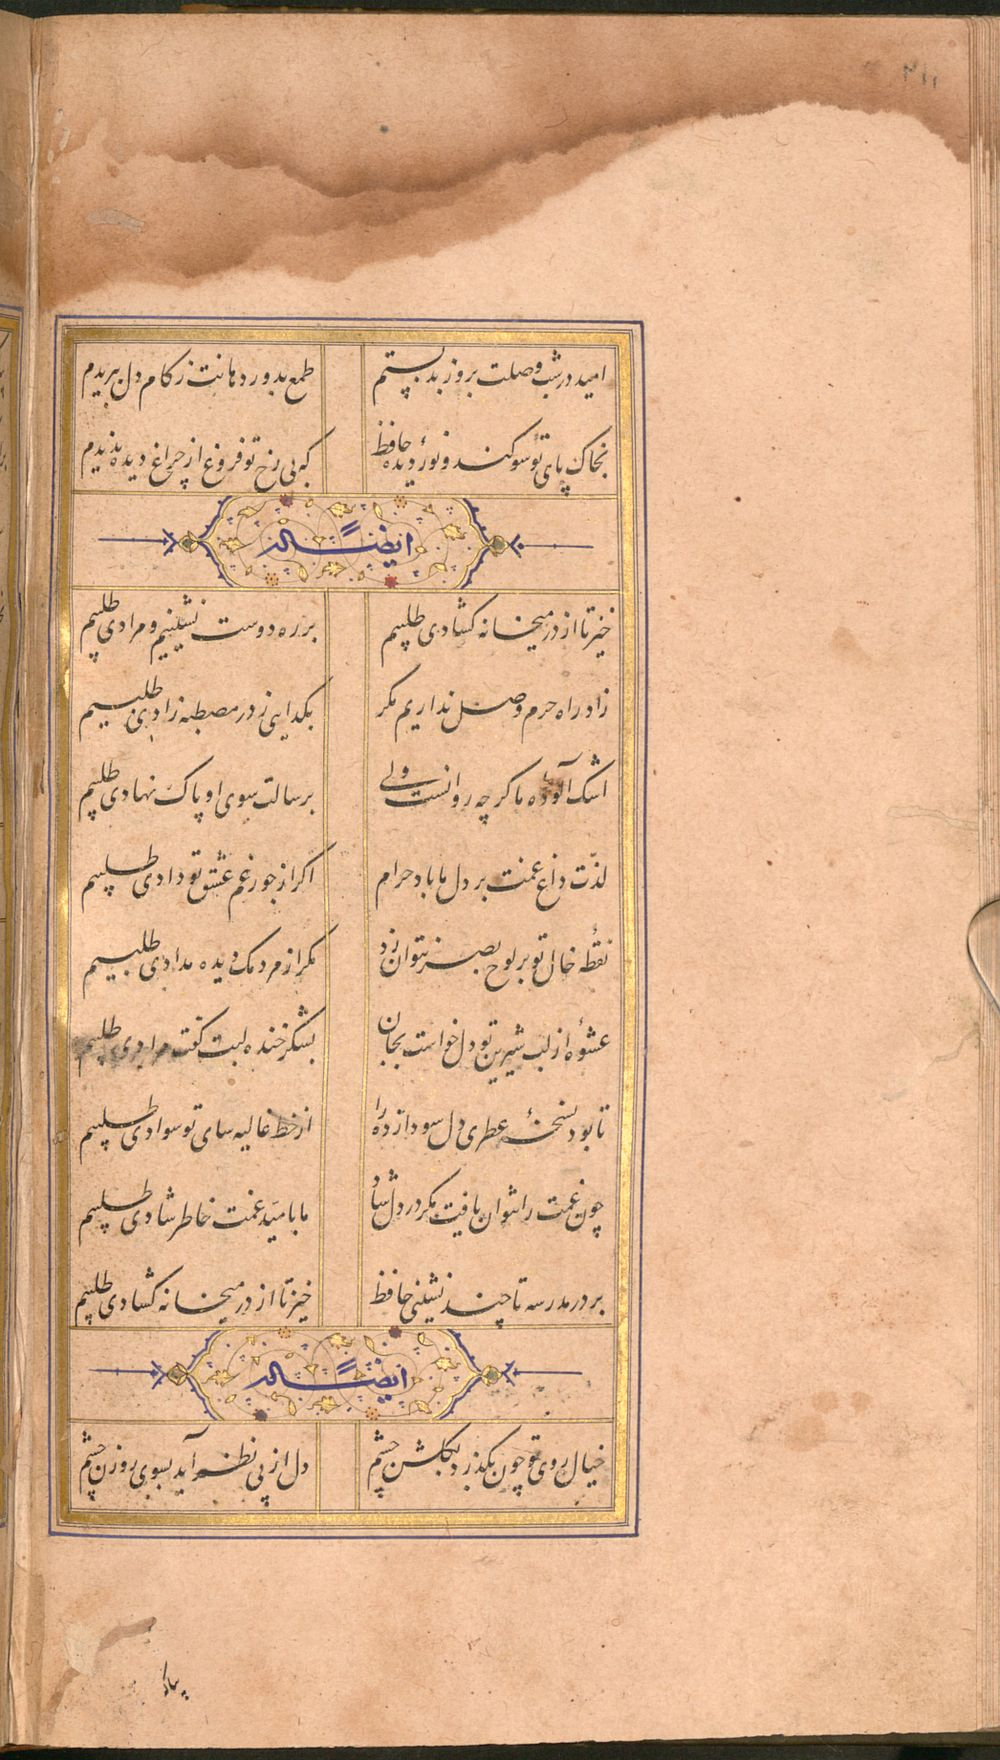 امید در شب وصلت بروز بد بستم طمع بدور دهانت ز کام دل ببریدم
بخاک پای تو سوکند و نور دیده حافظ که بی رخ تو فروغ از چراغ دیده ندیدم
ایضاً له
خیز تا از در میخانه کشادی طلبیم بر ره دوست نشینیم و مرادی طلبیم
زاد راه حرم وصل نداریم مکر بکدایی ز در مصطبه زادی طلبیم
اشک آلوده ما کرچه روانست ولی برسالت سوی او پاک نهادی طلبیم
لذّت داغ غمت بر دل ما باد حرام اکر از جور غم عشق تو دادی طلبیم
نقطه خال تو بر لوح بصر نتوان زد مکر از مردمک دیده مدادی طلبیم
عشوهٔ از لب شیرین تو دل خواست بجان بشکر خنده لبت کفت مرادی طلبیم
تا بود نسخهٔ عطری دل سودازده را از خط غالیه سای تو سوادی طلبیم
چون غمت را نتوان یافت مکر در دل شاد ما بامید غمت خاطر شادی طلبیم
بر در مدرسه تا چند نشینی حافظ خیز تا از در میخانه کشادی طلبیم
ایضاً له
خیال روی تو چون بکذرد بکلشن چشم دل از پی نظر آید بسوی روزن چشم